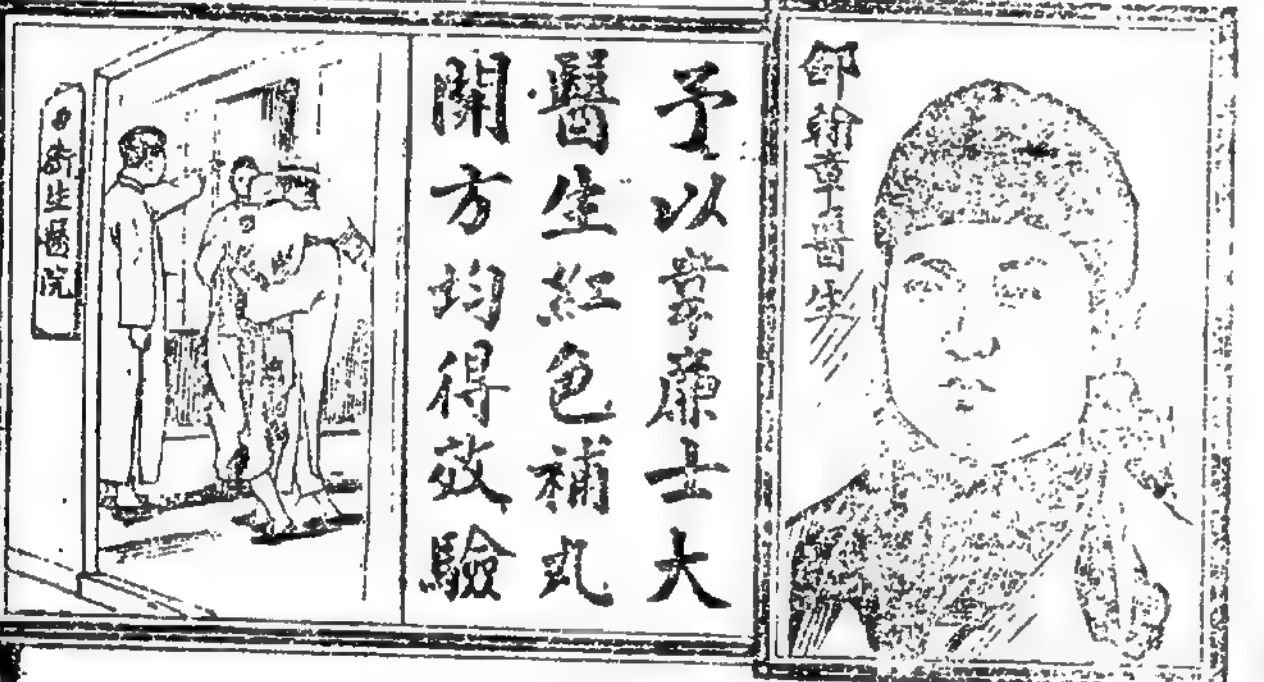 鄒翰章醫生
予以韋廉士大
醫生紅色補丸
開方均得效驗
衛生醫院